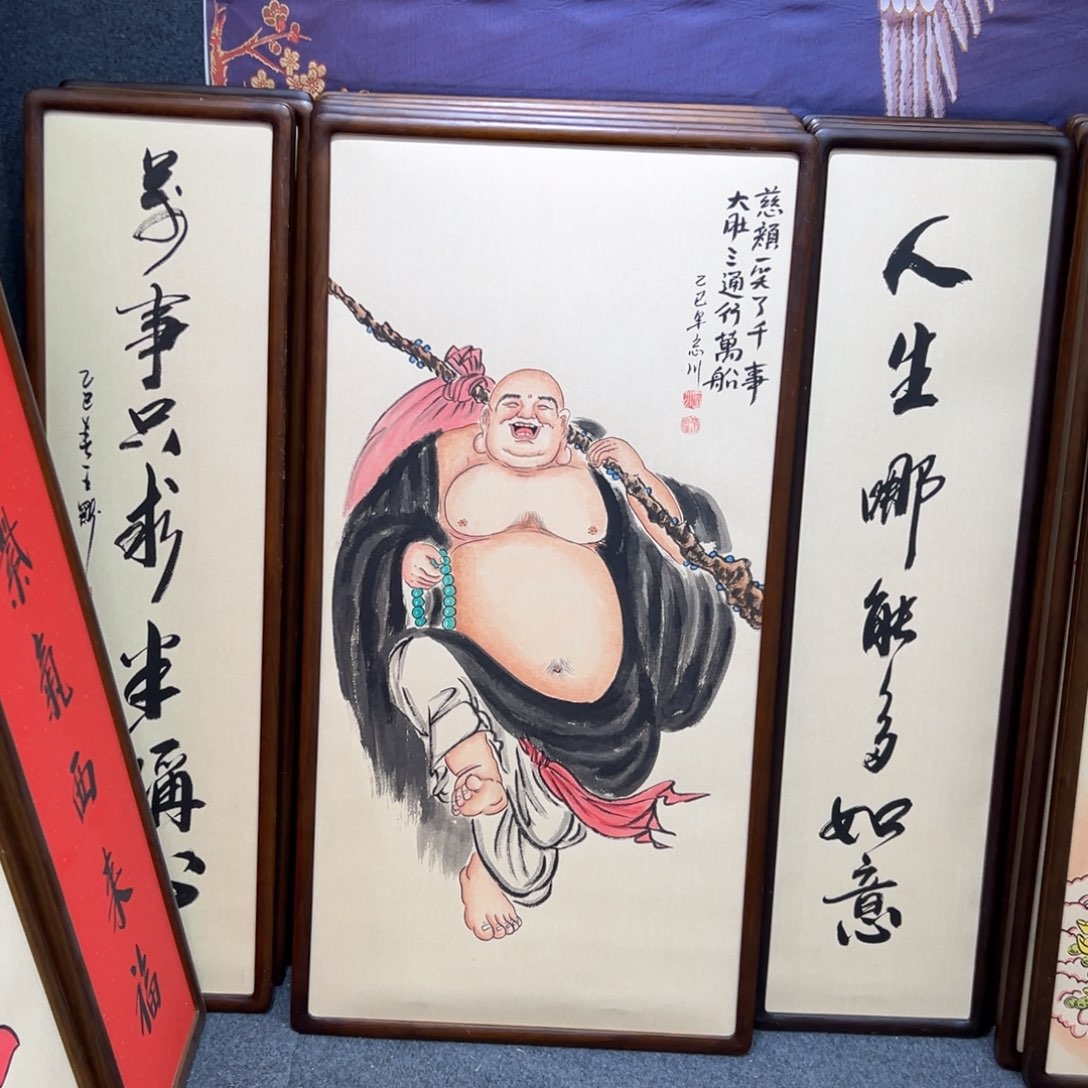 人生哪能多如意
慈顏一笑了千事
大肚三通行萬船
乙巳年志川
萬事只求半稱心
乙巳
紫氣西来福